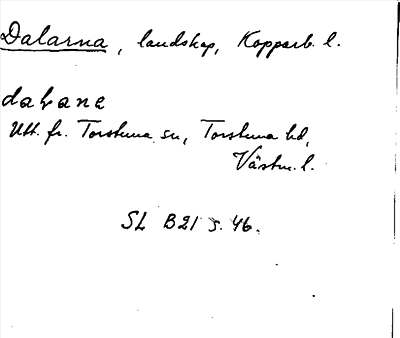 Dalarna, landskap, Kopparb. l.
dalana
Utt. fr. Torstuna sn, Torstuna hd,
Västm. l.
SL B21 s. 46.